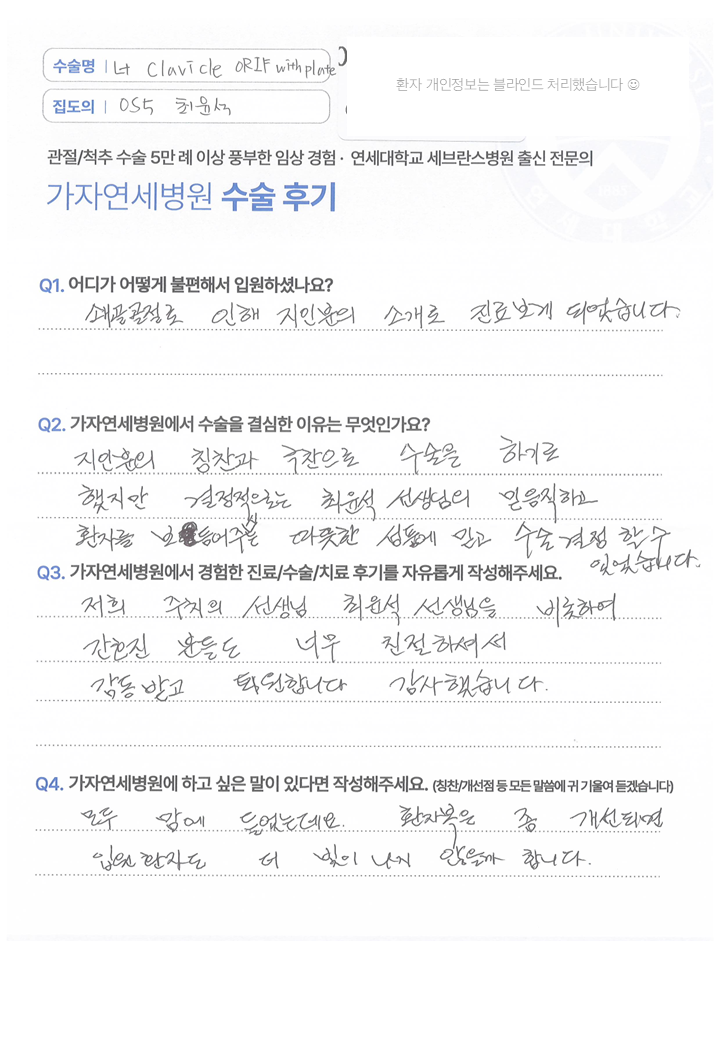 수술명 | Lt Clavicle ORIF with plate
집도의 | OS5 최윤석
환자 개인정보는 블라인드 처리했습니다 ☺
관절/척추 수술 5만 례 이상 풍부한 임상 경험 · 연세대학교 세브란스병원 출신 전문의
가자연세병원 수술 후기
Q1. 어디가 어떻게 불편해서 입원하셨나요?
쇄골골절로 인해 지인분의 소개로 진료보게 되었습니다.
Q2. 가자연세병원에서 수술을 결심한 이유는 무엇인가요?
지인분의 칭찬과 극찬으로 수술을 하기로
했지만 결정적으로는 최윤석 선생님의 믿음직하고
환자를 보듬어주는 따뜻한 성품에 믿고 수술 결정 할 수
있었습니다.
Q3. 가자연세병원에서 경험한 진료/수술/치료 후기를 자유롭게 작성해주세요.
저희 주치의 선생님 최윤석 선생님을 비롯하여
간호진 분들도 너무 친절하셔서
감동받고 퇴원합니다 감사했습니다.
Q4. 가자연세병원에 하고 싶은 말이 있다면 작성해주세요. (칭찬/개선점 등 모든 말씀에 귀 기울여 듣겠습니다)
모두 맘에 들었는데요. 환자복은 좀 개선되면
입원환자도 더 빛이 나지 않을까 합니다.